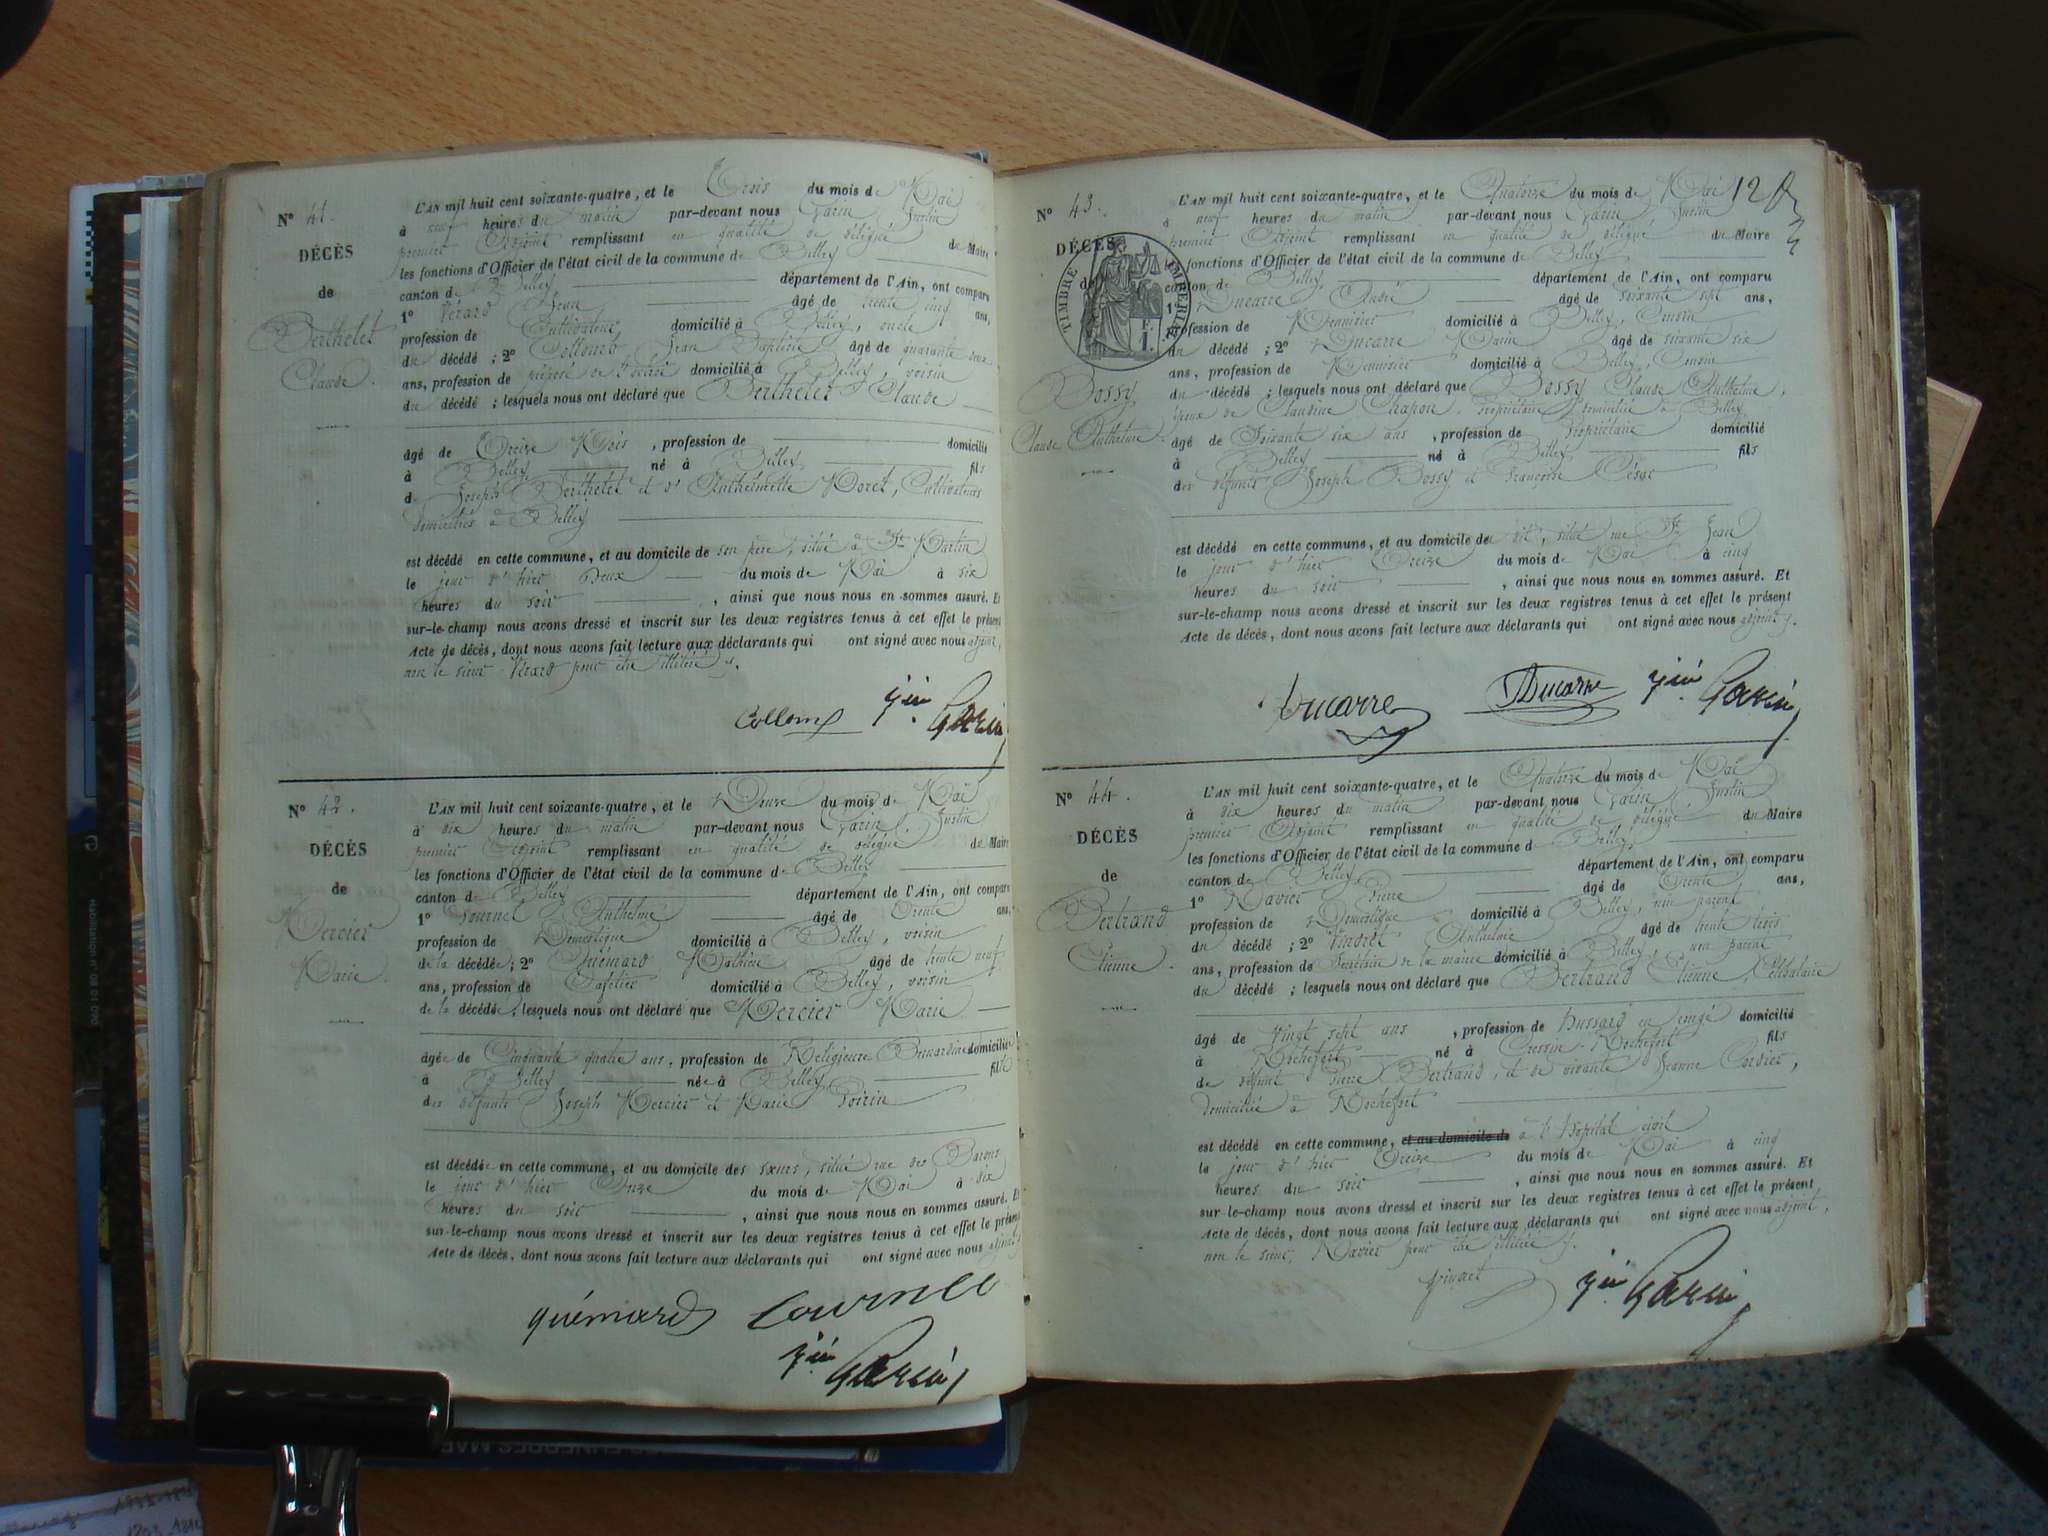 N° 41.
DÉCÈS
de
Berthelet
Claude.
L'AN mil huit cent soixante-quatre, et le Trois du mois de Mai
à neuf heures du matin par-devant nous Garin, Justin
premier Adjoint remplissant en qualité de délégué du Maire
les fonctions d'Officier de l'état civil de la commune de Belley
canton de Belley département de l'Ain, ont comparu
1° Vérard Jean âgé de trente cinq ans,
profession de Cultivateur domicilié à Belley, oncle
du décédé ; 2° Collomb Jean Baptiste âgé de quarante deux
ans, profession de préposé de l'octroi domicilié à Belley, voisin
du décédé ; lesquels nous ont déclaré que Berthelet Claude
âgé de Treize Mois, profession de domicilié
à Belley né à Belley fils
de Joseph Berthelet et d'Anthelmette Moret, Cultivateurs
domiciliés à Belley
est décédé en cette commune, et au domicile de son père, situé à St Martin
le jour d'hier Deux du mois de Mai à six
heures du soir, ainsi que nous nous en sommes assuré. Et
sur-le-champ nous avons dressé et inscrit sur les deux registres tenus à cet effet le présent
Acte de décès, dont nous avons fait lecture aux déclarants qui ont signé avec nous adjoint,
non le sieur Vérard pour être illétéré
Collomb Jin Garin
N° 42.
DÉCÈS
de
Mercier
Marie.
L'AN mil huit cent soixante-quatre, et le Douze du mois de Mai
à dix heures du matin par-devant nous Garin, Justin
premier Adjoint remplissant en qualité de délégué du Maire
les fonctions d'Officier de l'état civil de la commune de Belley
canton de Belley département de l'Ain, ont comparu
1° Tournel Anthelme âgé de Trente ans,
profession de Domestique domicilié à Belley, voisin
de la décédée ; 2° Quémard Mathieu âgé de trente neuf
ans, profession de Cafetier domicilié à Belley, voisin
de la décédée ; lesquels nous ont déclaré que Mercier Marie
âgée de Cinquante quatre ans, profession de Religieuse Bernardine domicilié
à Belley née à Belley fille
des défunts Joseph Mercier et Marie Poirin
est décédée en cette commune, et au domicile des sœurs, situé rue des Barons
le jour d'hier Onze du mois de Mai à dix
heures du soir, ainsi que nous nous en sommes assuré. Et
sur-le-champ nous avons dressé et inscrit sur les deux registres tenus à cet effet le présent
Acte de décès, dont nous avons fait lecture aux déclarants qui ont signé avec nous adjoint
quémard
Jin Garin
N° 43.
DÉCÈS
de
TIMBRE IMPÉRIAL
Bossy
Claude Anthelme.
12
L'AN mil huit cent soixante-quatre, et le Quatorze du mois de Mai
à neuf heures du matin par-devant nous Garin, Justin
premier Adjoint remplissant en qualité de délégué du Maire
les fonctions d'Officier de l'état civil de la commune de Belley
canton de Belley, département de l'Ain, ont comparu
1° Ducarre André âgé de soixante sept ans,
profession de Menuisier domicilié à Belley, Cousin
du décédé ; 2° Ducarre Marin âgé de soixante six
ans, profession de Menuisier domicilié à Belley, Cousin
du décédé ; lesquels nous ont déclaré que Bossy Claude Anthelme,
époux de Claudine Chapon, Propriétaire domiciliée à Belley
âgé de Soixante six ans, profession de Propriétaire domicilié
à Belley né à Belley fils
des défunts Joseph Bossy et Françoise César
est décédé en cette commune, et au domicile du dit, situé rue St Jean
le jour d'hier Treize du mois de Mai à cinq
heures du soir, ainsi que nous nous en sommes assuré. Et
sur-le-champ nous avons dressé et inscrit sur les deux registres tenus à cet effet le présent
Acte de décès, dont nous avons fait lecture aux déclarants qui ont signé avec nous adjoint
Ducarre Ducarre Jin Garin
N° 44.
DÉCÈS
de
Bertrand
Etienne.
L'AN mil huit cent soixante-quatre, et le Quatorze du mois de Mai
à dix heures du matin par-devant nous Garin, Justin
premier Adjoint remplissant en qualité de délégué du Maire
les fonctions d'Officier de l'état civil de la commune de Belley
canton de Belley département de l'Ain, ont comparu
1° Navier Pierre âgé de Trente ans,
profession de Domestique domicilié à Belley, non parent
du décédé ; 2° Vindret Anthelme âgé de trente trois
ans, profession de Secrétaire de la mairie domicilié à Belley, non parent
du décédé ; lesquels nous ont déclaré que Bertrand Etienne, Célibataire
âgé de vingt sept ans, profession de hussard en congé domicilié
à Rochefort né à Cressin-Rochefort fils
de défunt Pierre Bertrand, et de vivante Jeanne Cordier,
domiciliée à Rochefort
est décédé en cette commune, et au domicile de à l'hôpital civil
le jour d'hier Treize du mois de Mai à cinq
heures du soir, ainsi que nous nous en sommes assuré. Et
sur-le-champ nous avons dressé et inscrit sur les deux registres tenus à cet effet le présent
Acte de décès, dont nous avons fait lecture aux déclarants qui ont signé avec nous adjoint,
non le sieur, Navier pour être illétéré
Vindret Jin Garin